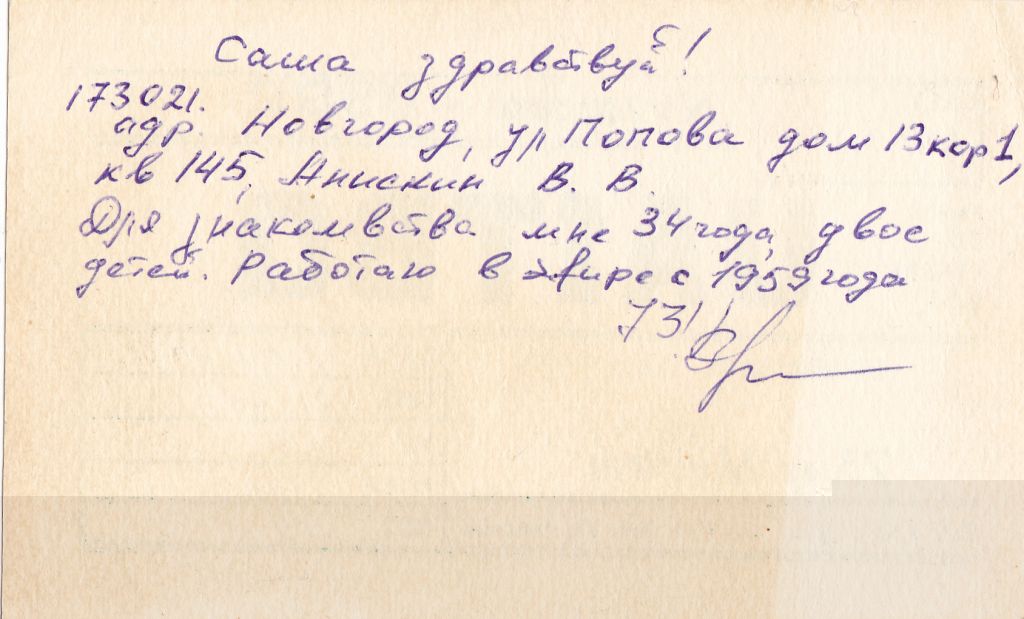 Саша здравствуй!
173021.
адр. Новгород, ул Попова дом 13 кор 1,
кв 145, Анискин В. В.
Для знакомвства мне 34 года, двое
детей. Работаю в эфире с 1959 года
73!